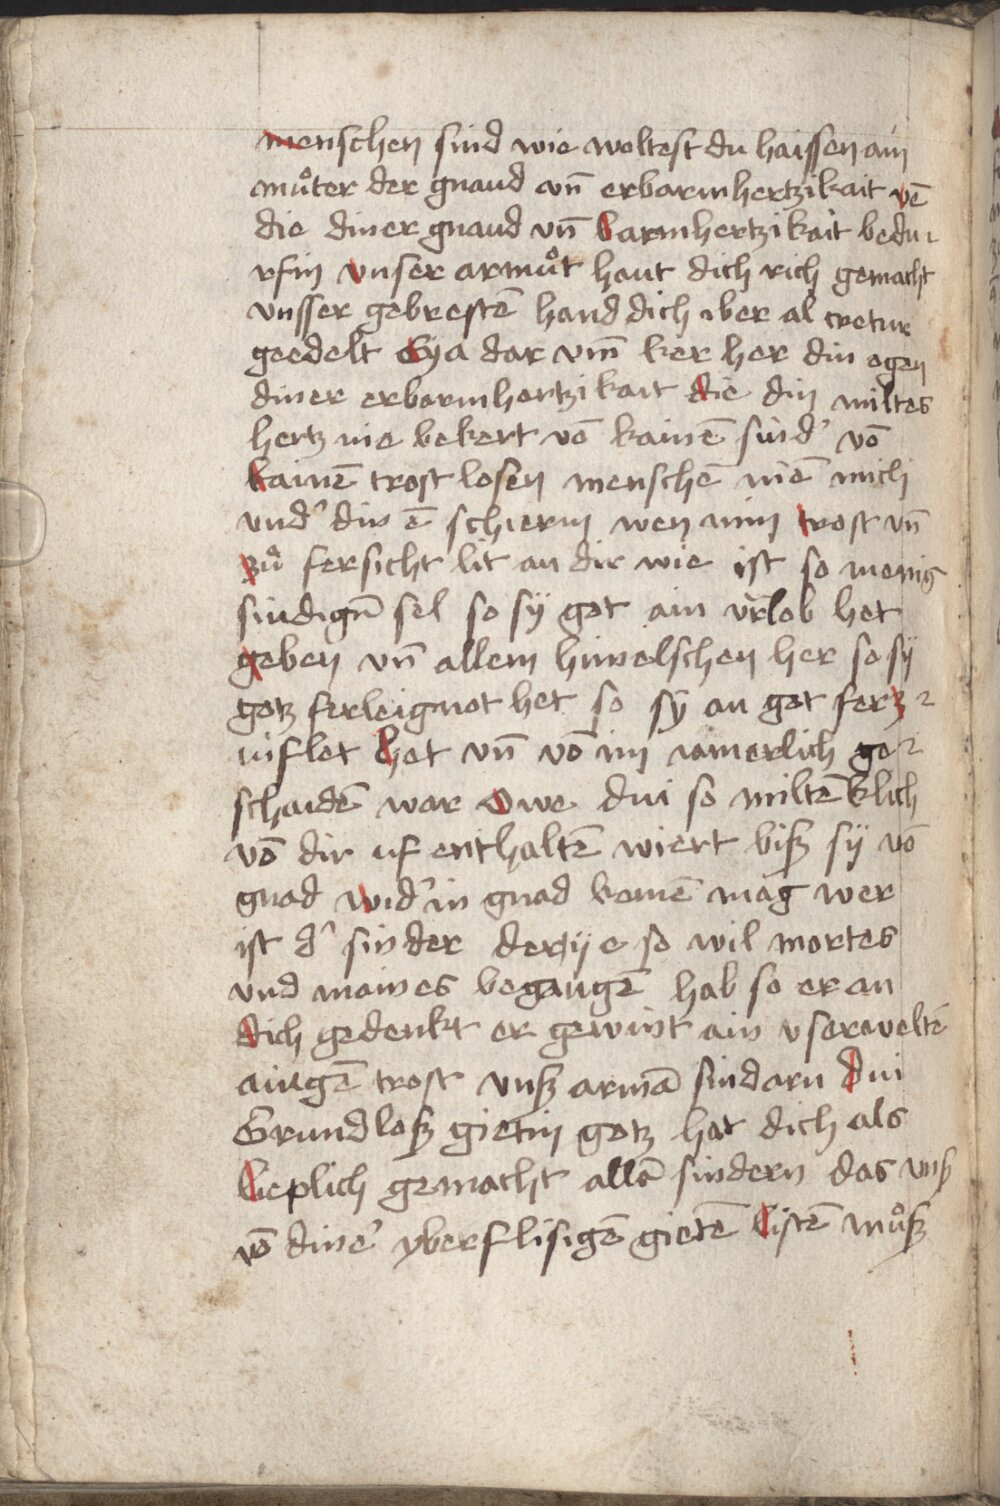 menschen sind wie woltest du haissen ain
muͦter der gnaud vn̄ erbarmhertzikait vē
die diner gnaud vn̄ barmhertzikait bedu-
rfin vnser armuͦt haut dich rich gemacht
vnsser gebrestē hand dich iber al cretur
geedelt Eya dar vm̄ ker her din ogen
diner erbarmhertzikait die din miltes
hertz nie bekert vō kainē sind' vō
kainē trost losen menschē niē mich
vnd' din ē schierm wen min trost vn̄
zuͦ fersicht lit an dir wie ist so menig
sindign̄ sel so sÿ got ain vrlob het
geben vn̄ allem himelschen her so sÿ
gotz ferleignot het so sÿ an got ferz-
wiflet het vn̄ vō im iamerlich ge-
schaidē war Owe dui so miltēklich
vō dir uf enthaltē wiert bisz sÿ vō
gnad wid' in gnad komē mag wer
ist d' sinder der ÿe so wil mortes
vnd maines begangē hab so er an
dich gedenkt er gewint ain vserweltē
aingē trost vnsz armā sindarn dui
Grundlosz gietin gotz hat dich als
lieplich gemacht allā sindern das vnsz
vō dine' yberflisigē gietē listē muͦsz